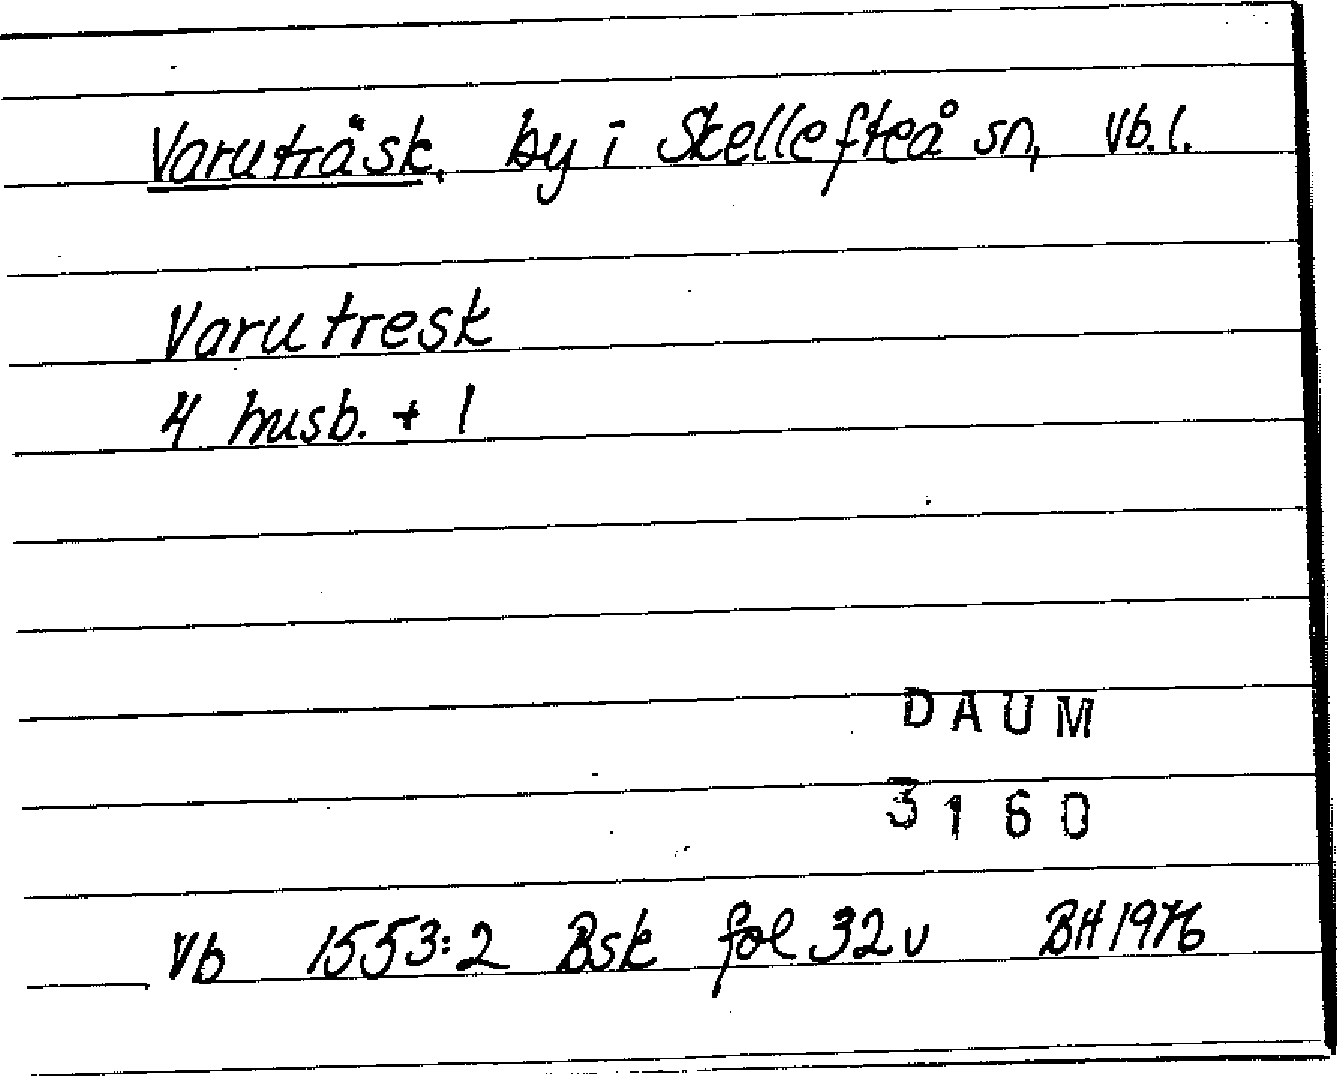 Varuträsk, by i Skellefteå sn, Vb.l.
Varutresk
4 husb. + 1
DAUM
3160
Vb 1553:2 Bsk fol 32v BH 1976